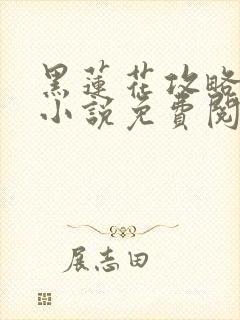 黑蓮花攻略
小說免費閱
展志田